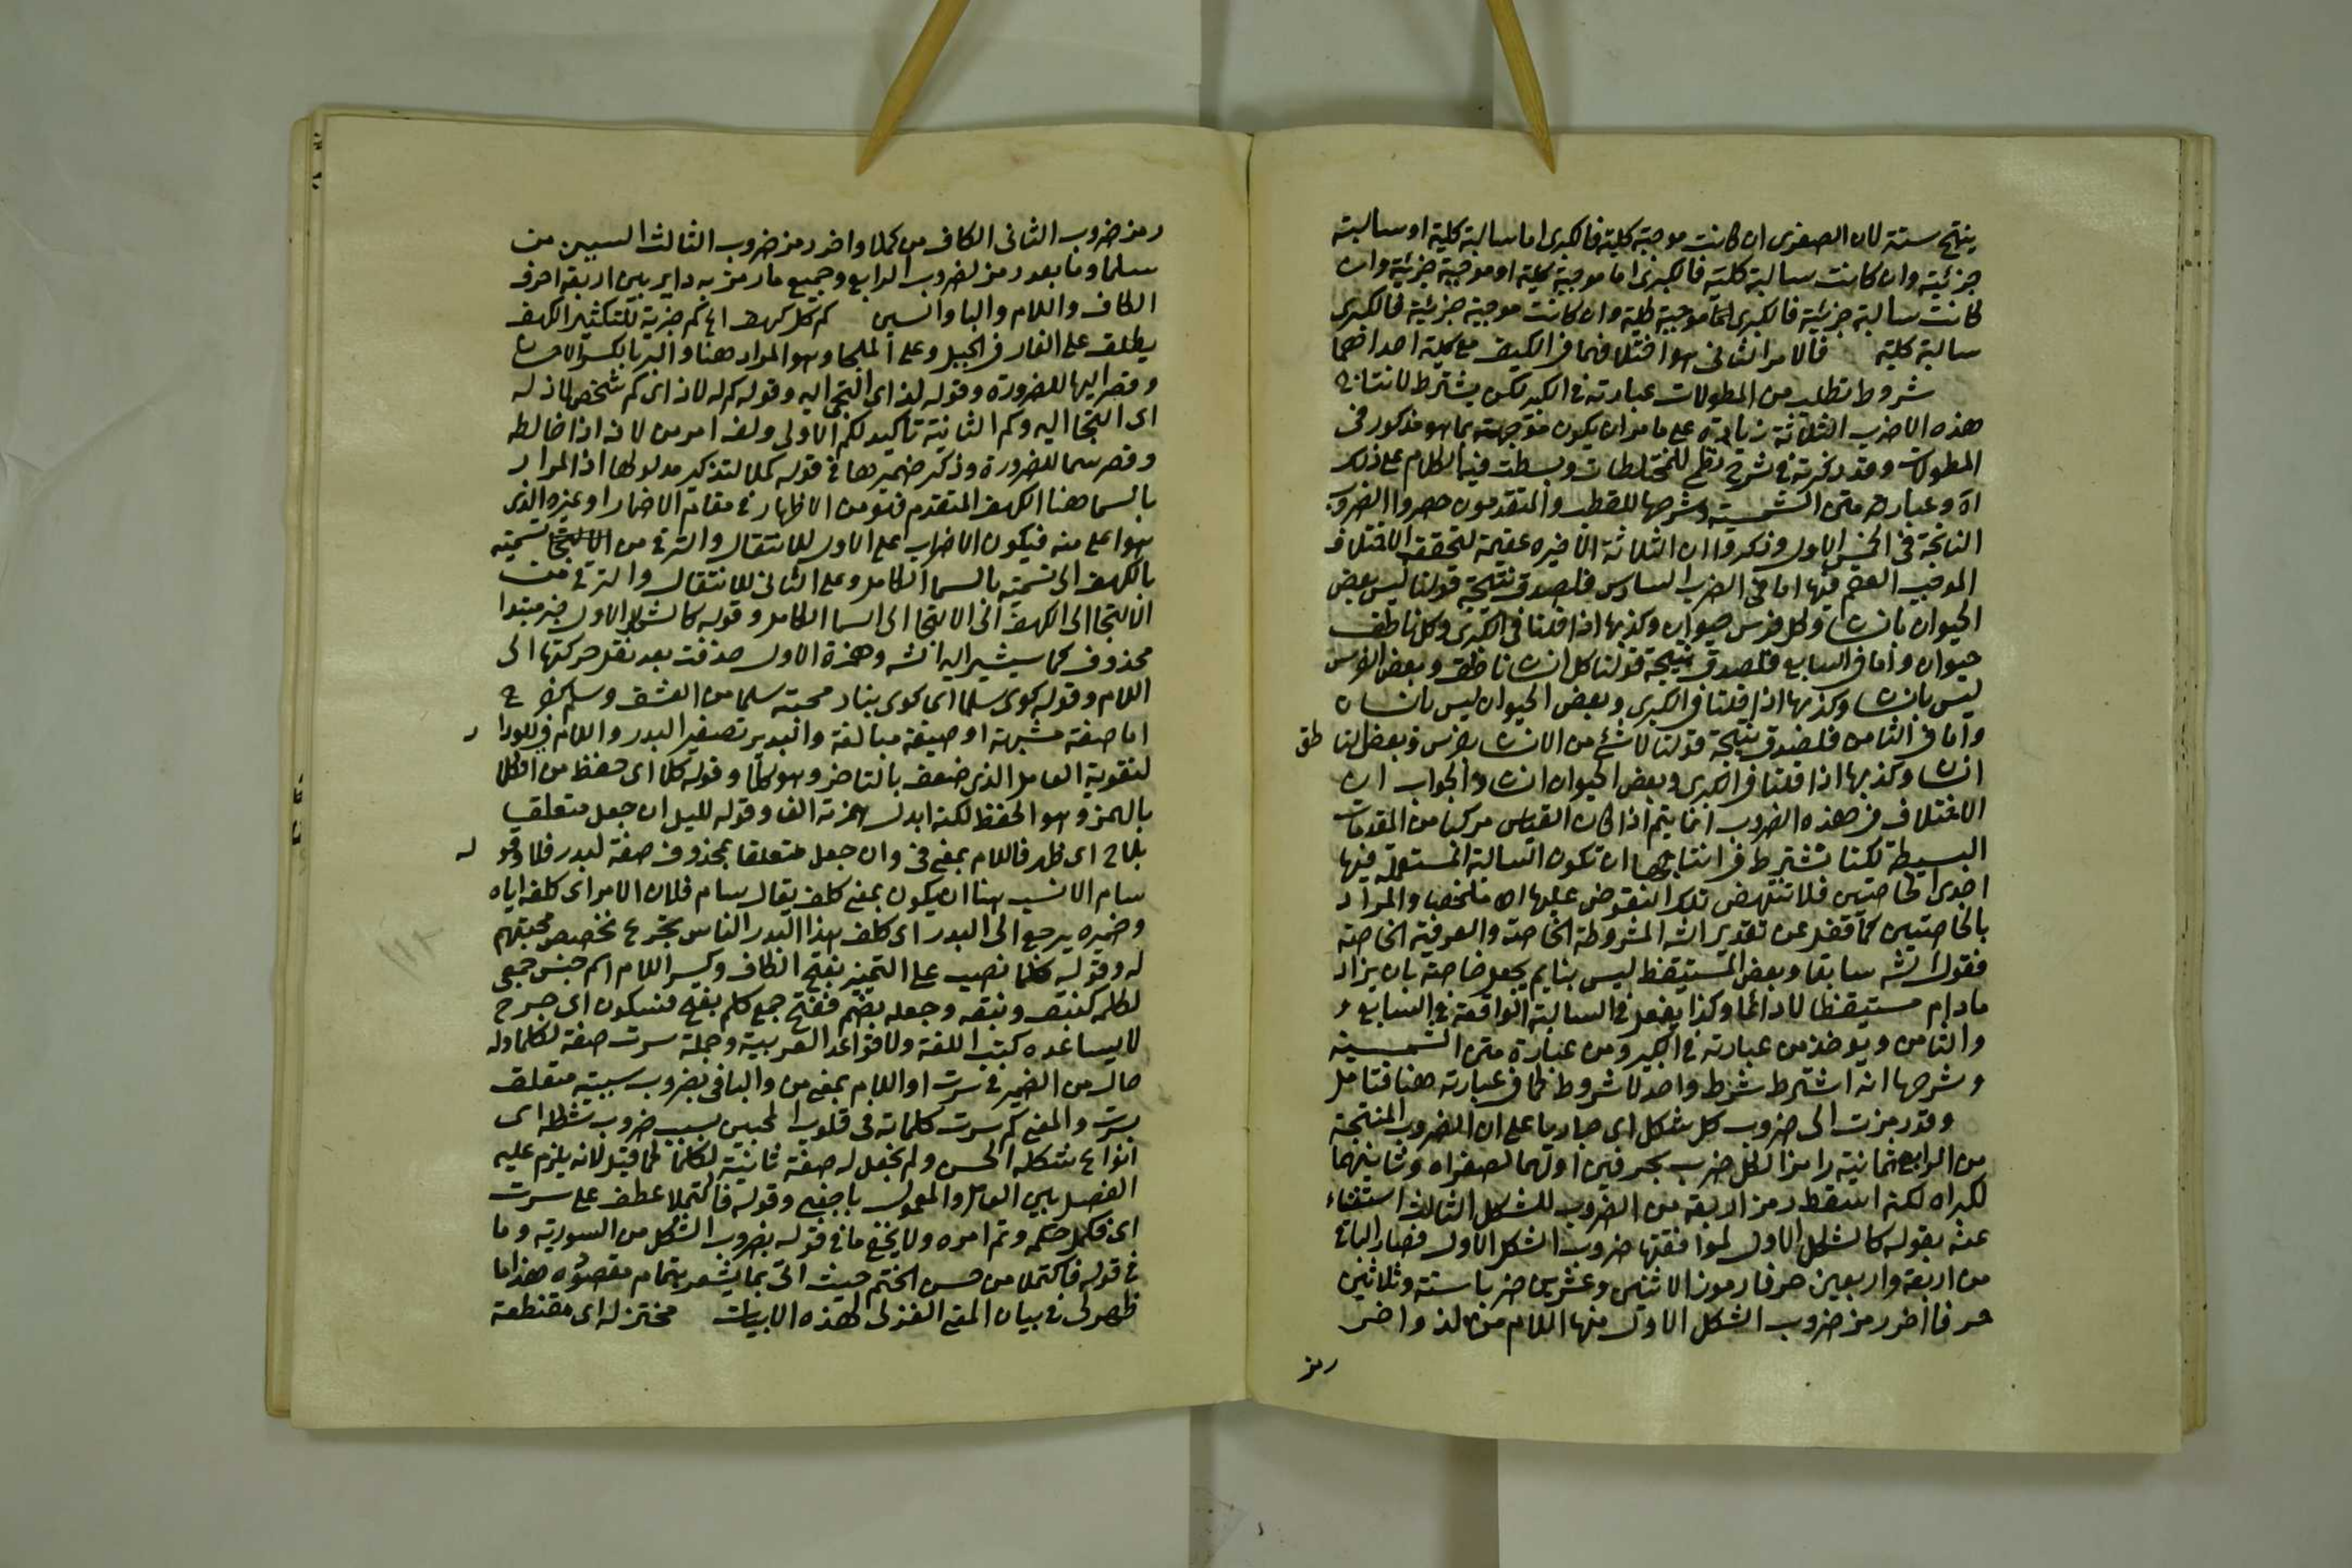 ينتج ستة لان الصغرى ان كانت موجبة كلية فالكبرى اما سالبة كلية او سالبة
جزئية وان كانت سالبة كلية فالكبرى اما موجبة كلية او موجبة جزئية وان
كانت سالبة جزئية فالكبرى موجبة كلية وان كانت موجبة جزئية فالكبرى
سالبة كلية فالامر الثانى هو اختلافهما فى الكيف مع كلية احداهما
شروط تطلب من المطولات عبارته فى الكبير لكن يشترط لانتاج
هذه الاضرب الثلاثة زيادة على ما مر ان يكون موجهته بما هو مذكور فى
المطولات وقد ذكرته فى شرح نظم للمختلطات وبسطت فيه الكلام على ذلك
اه وعبارة متن الشمسية وشرحها للقطب والمتقدمون حصروا الضروب
الناتجة فى الخمس الاول وذكروا ان الثلاثة الاخيره عقيمة لتحقق الاختلاف
الموجب العقم فيها اما فى الضرب السادس فلصدق نتيجة قولنا ليس بعض
الحيوان بانسان وكل فرس حيوان وكذبها اذا قلنا فى الكبرى وكل ناطق
حيوان واما فى السابع فلصدق نتيجة قولنا كل انسان ناطق وبعض الفرس
ليس بانسان وكذبها اذا قلنا فى الكبرى وبعض الحيوان ليس بانسان
واما فى الثامن فلصدق نتيجة قولنا لا شئ من الانسان بفرس وبعض النا طق
انسان وكذبها اذا قلنا فى الكبرى وبعض الحيوان انسان والجواب ان
الاختلاف فى هذه الضروب انما يتم اذا كان القياس مركبا من المقدمات
البسيطة لكنا نشترط فى انتاجها ان تكون السالبة المستعملة فيها
احدى الخاصتين فلا تنتهض تلك النقوض عليها اه ملخصا والمراد
بالخاصتين كما نقل عن تقرير الشه المشروطة الخاصة والعرفية الخاصة
فقول الشه سابقا وبعض المستيقظ ليس بنايم يجعل خاصة بان يزاد
مادام مستيقظا لا دائما وكذا يفعل فى السالبة الواقعة فى السابع
والثامن ويؤخذ من عبارته فى الكبير ومن عبارة متن الشمسية
وشرحها انه اشترط شرط واحد لا شروط كما فى عبارته هنا فتامل
وقد رمزت الى ضروب كل شكل اى جاريا على ان الضروب المنتجة
من الرابع ثمانية رامزا لكل ضرب بحرفين اولهما لصغراه وثانيهما
لكبراه لكنه اسقط رمز الاربعة من الضروب للشكل الثالث استغناء
عنه بقوله كالشكل الاول لموافقتها ضروب الشكل الاول فصار الباقى
من اربعة واربعين حرفا رموز الاثنين وعشرين ضربا ستة وثلاثين
حرفا اخر رمز ضروب الشكل الاول منها اللام من لذ واخر
رمز
رمز ضروب الثانى الكاف من كملا واخر رمز ضروب الثالث السين من
سلما وما بعد رمز لضروب الرابع وجميع ما رمز به داير بين اربعة احرف
الكاف واللام والبا والسين كم كل كهف الخ كم خبرية للتكثير الكهف
يطلق على الغار فى الجبل وعلى الملجا وهو المراد هنا والبر بالكسر الاحسان
وقصر اليها للضرورة وقوله لذ اى التجى اليه وقوله كم له لاذ اى كم شخص لاذ له
اى التجا اليه وكم الثانية تاكيد لكم الاولى ولذ امر من لاذ اذا خالطه
وقصر سما للضرورة وذكر ضميرها فى قوله كملا لتذكير مدلولها اذ المراد
بالسما هنا الكهف المتقدم فهو من الاظهار فى مقام الاضمار او غيره الذى
هو اعلى منه فيكون الاضراب على الاول للانتقال والترقى من تسميته
بالكهف الى تسميته بالسما الكامل وعلى الثانى للانتقال والترقى من
الالتجا الى الكهف الى الالتجا الى السما الكامل وقوله كالشكل الاول خبر مبتدا
محذوف كما سيشير اليه الشه وهمزة الاول حذفت بعد نقل حركتها الى
اللام وقوله كوى سلما اى كوى بنار محبته سلما من العشق وسلم
اما صفة مشبهة او صيغة مبالغة والبدير تصغير البدر واللام
لتقوية العامل الذى ضعف بالتاخر وهو كلا وقوله كلا اى حفظ من الكلا
بالهمز وهو الحفظ لكنه ابدل همزته الفا وقوله لليل ان جعل متعلقا
بلاح اى ظهر فاللام بمعنى فى وان جعل متعلقا بمحذوف صفة لبدر فلا وقو له
سام الانسب هنا ان يكون بمعنى كلف يقال سام فلان الامر اى كلفه اياه
وضميره يرجع الى البدر اى كلف هذا البدر الناس تجرع تخصيص محبتهم
له وقوله كلما نصب على التمييز بفتح الكاف وكسر اللام اسم جنس جمعى
لكلمة كنبق ونبقه وجعله بضم ففتح جمع كلم بفتح فسكون اى جرح
لا يساعده كتب اللغة ولا قواعد العربية وجملة سرت صفة لكلما وله
حال من الضمير فى سرت او اللام بمعنى من والبا فى بضروب سببية متعلق
بسرت والمعنى كم سرت كلماته فى قلوب المحبين بسبب ضروب شكله اى
انواع شكله الحسن ولم يجعل له صفة ثانية لكلما كما قيل لانه يلزم عليه
الفصل بين العامل والمعمول باجنبى وقوله فاكتملا عطف على سرت
اى فكمل حكمه وتم امره ولا يخفى ما فى قوله بضروب الشكل من التورية وما
فى قوله فاكتملا من حسن الختم حيث اتى بما يشعر بتمام مقصوده هذا ما
ظهر لى فى بيان المعنى الغزلى لهذه الابيات مختزله اى مقتطعة